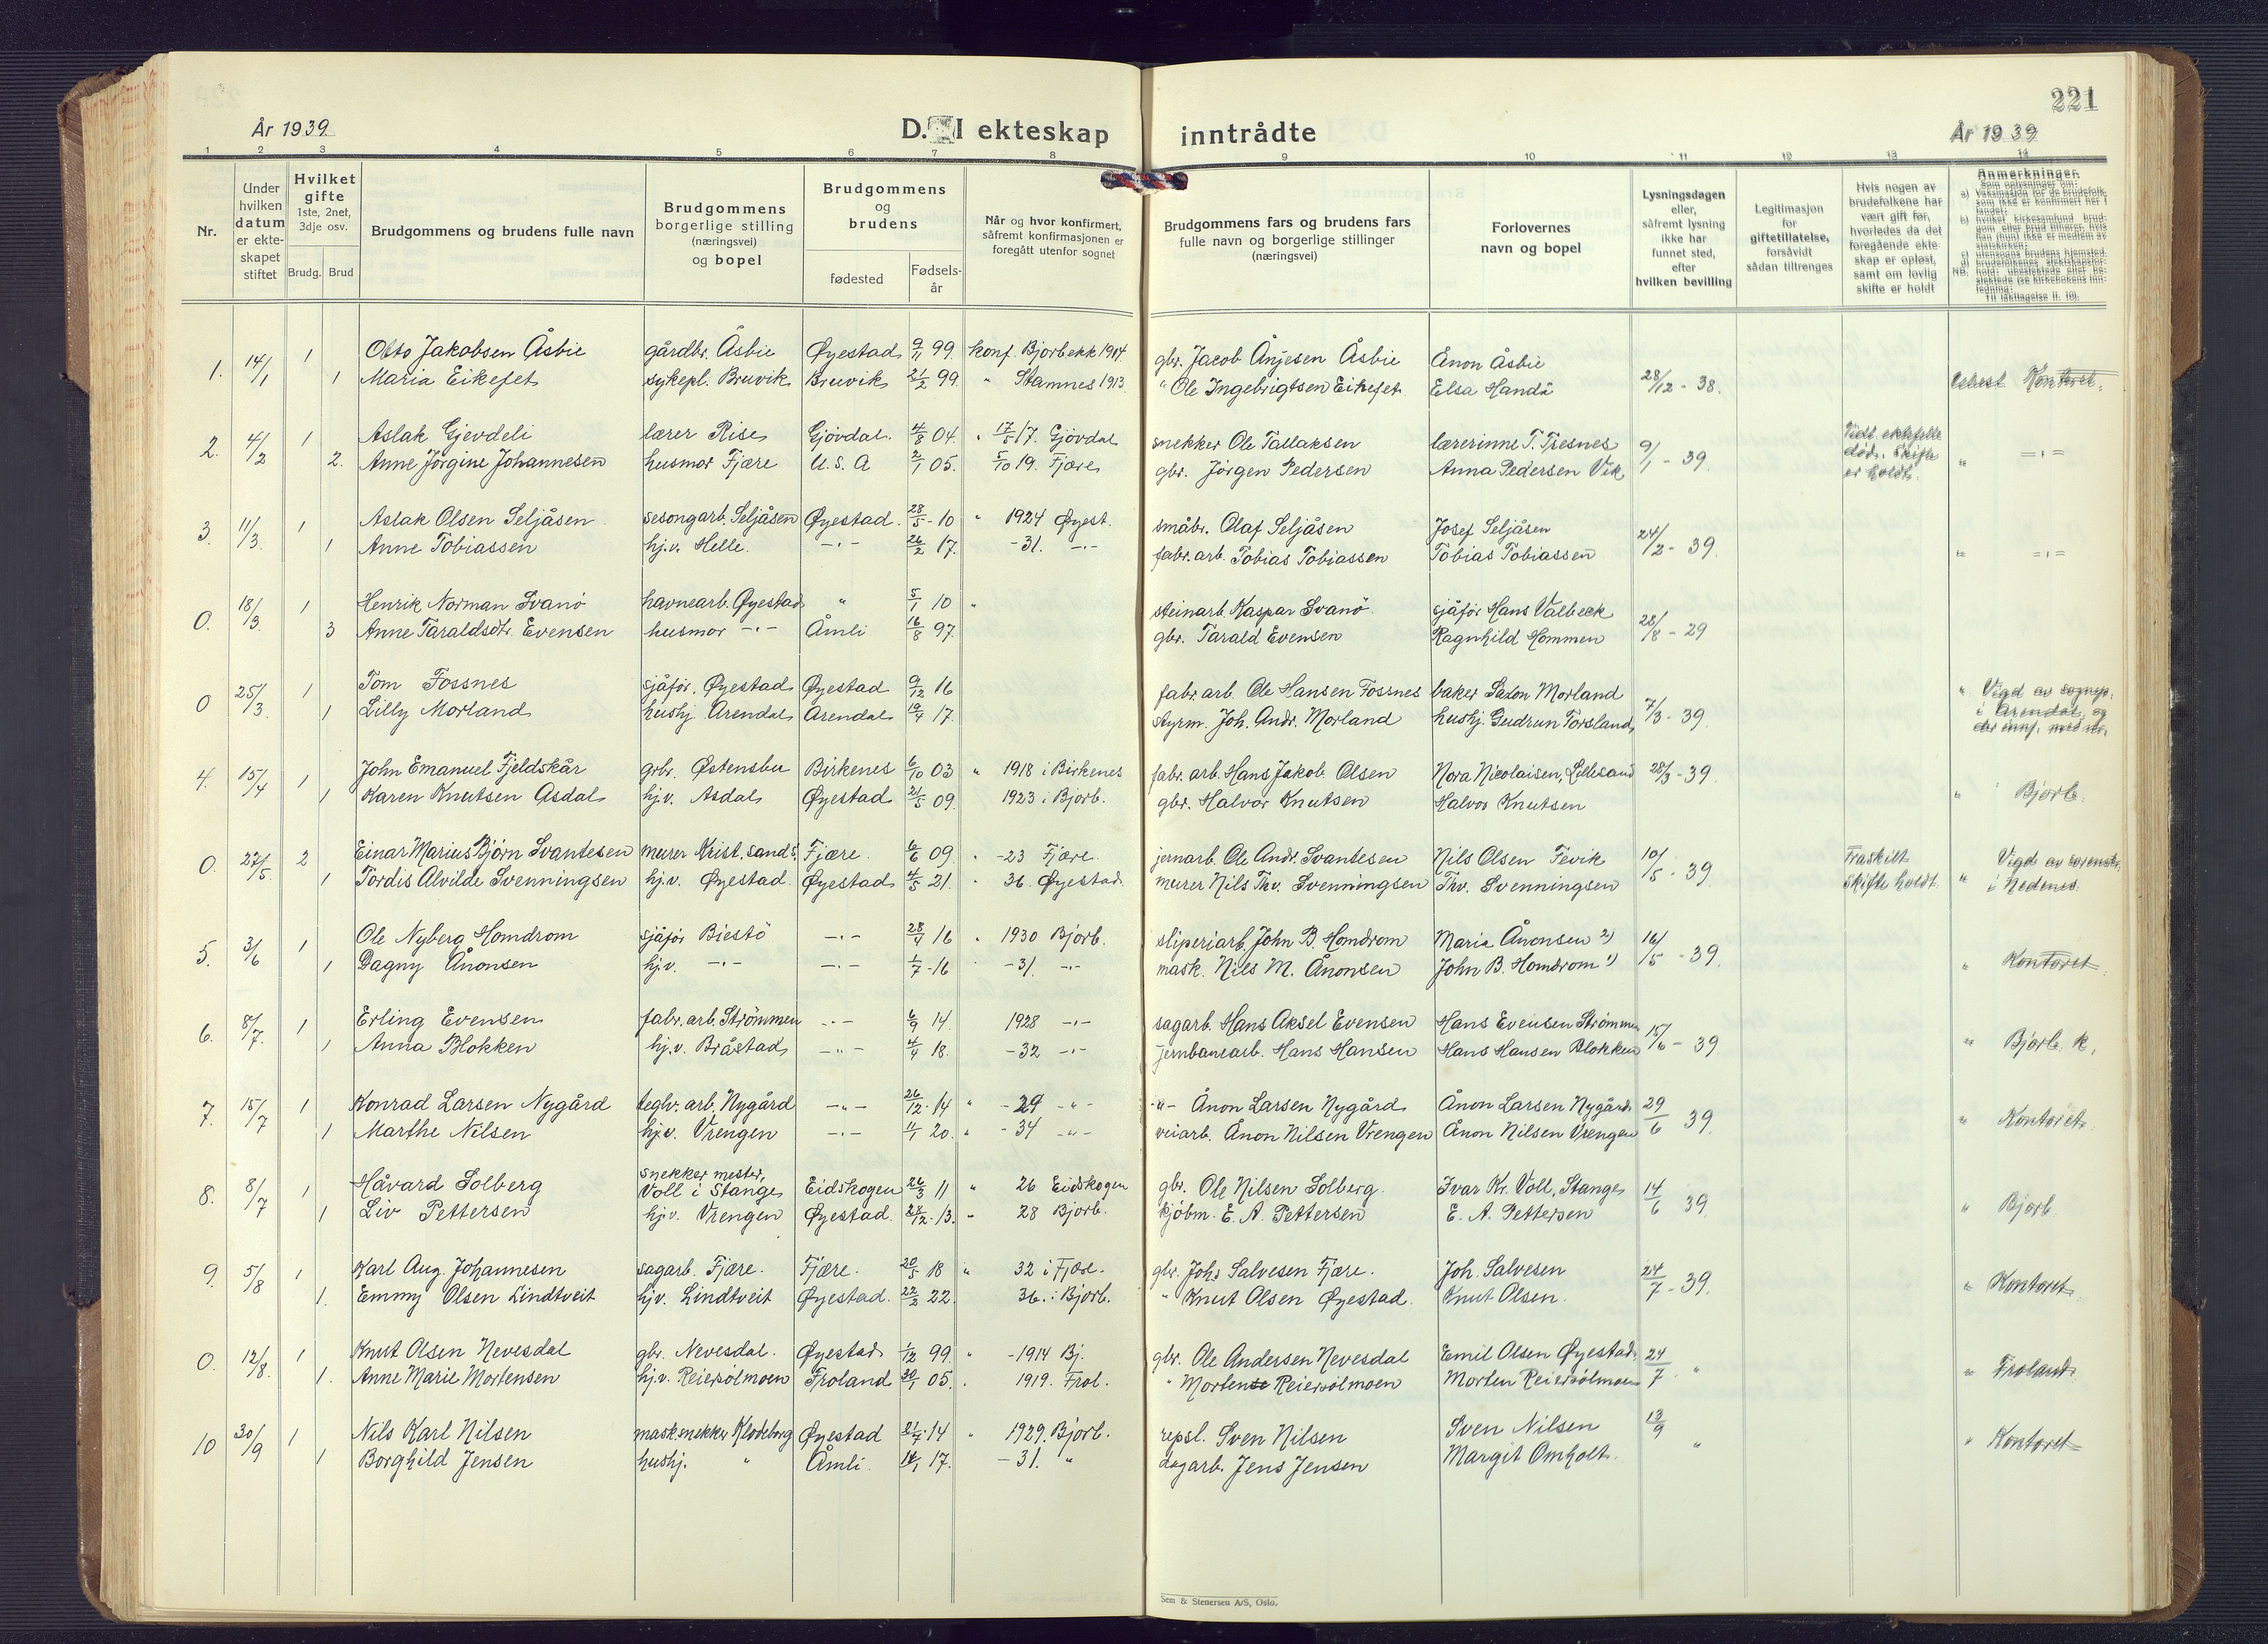 221
År 1939
D. I ekteskap inntrådte
År 1939
1 2 3 4 5 6 7 8 9 10 11 12 13 14
Nr.
Under hvilken datum er ekteskapet stiftet
Hvilket gifte 1ste, 2net, 3dje osv.
Brudg. Brud
Brudgommens og brudens fulle navn
Brudgommens borgerlige stilling (næringsvei) og bopel
Brudgommens og brudens
fødested
Fødselsår
Når og hvor konfirmert, såfremt konfirmasjonen er foregått utenfor sognet
Brudgommens fars og brudens fars fulle navn og borgerlige stillinger (næringsvei)
Forlovernes navn og bopel
Lysningsdagen eller, såfremt lysning ikke har funnet sted, efter hvilken bevilling
Legitimasjon for giftetillatelse, forsåvidt sådan tiltrenges
Hvis nogen av brudefolkene har vært gift før, hvorledes da det foregående ekteskap er opløst, samt om lovlig skifte er holdt
Anmerkninger.
1. 14/1 1 Otto Jakobsen Åsbie gårdbr. Åsbie Øyestad 9/11 99. konf. Bjorbekk 1914. gbr. Jacob Ånjesen Åsbie Ånon Åsbie
1 Maria Eikefet sykepl. Bruvik Bruvik 21/2 99. " Stamnes 1913 " Ole Ingebrigtsen Eikefet Elsa Handå 28/12 - 38. Kontoret
2. 4/2 1 Aslak Gjevdeli lærer Rise Gjövdal. 4/8 04. " 17/5 17. Gjövdal snekker Ole Tallaksen lærerinne T. Tresnes 9/1 - 39 Tidl. ektefelle død. Skifte er holdt.
2. Anne Jørgine Johannesen husmor Fjære U.S.A 2/1 05. 5/10 19. Fjære gbr. Jörgen Pedersen Anna Pedersen Vik " = " =
3. 11/3. 1 Aslak Olsen Seljåsen sesongarb. Seljåsen Øyestad. 28/5 - 10 " 1924 Øyest. småbr. Olaf Seljåsen Josef Seljåsen
1 Anne Tobiassen hj.v. Helle. -"- 26/2 17. -31. -"- fabr. arb. Tobias Tobiassen Tobias Tobiassen 24/2 - 39. " = " =
0. 18/3. 1 Henrik Norman Svanö havnearb. Øyestad " 5/1 10 " steinarb. Kaspar Svanö. sjåför Hans Valbekk
3 Anne Taraldsdtr. Evensen husmor -"- Åmli 16/8 97. gbr. Tarald Evensen Ragnhild Hommen 28/8 - 29
0 25/3. 1 Tom Fossnes sjåför. Øyestad Øyestad 9/12 16 fabr arb. Ole Hansen Fossnes baker Salon Morland " Vigd av sognep.
1 Lilly Morland hushj. Arendal Arendal 19/4 17. styrm. Joh. Andr. Morland hushj. Gudrun Torsland 7/3 - 39. i Arendal, og
4. 15/4 1 John Emanuel Fjeldskår grbr. Østensbu Birkenes 6/10 03 " 1918 i Birkenes fabr. arb. Hans Jakob Olsen Nora Nicolaisen, Lillesand 28/3 - 39.
1 Karen Knutsen Asdal hj.v. Asdal Øyestad 21/5 09. 1923 i Bjorb. gbr. Halvor Knutsen Halvor Knutsen " Bjorb.
0. 27/5. 2 Einar Marius Bjørn Svantesen murer Krist.sand S. Fjære. 6/6 09. " -23 Fjære. jernarb. Ole Andr. Svantesen Nils Olsen Fevik 10/5 - 39 Fraskilt Vigd av sorenskr.
1 Tordis Alvilde Svenningsen hj.v. Øyestad. Øyestad 4/5 21. " 36. Øyestad. murer Nils Thv. Svenningsen Thv. Svenningsen Skifte holdt. " i Nedenes.
5. 3/6 1 Ole Nyberg Homdrom sjåför Biestö -"- 28/4 16 " 1930 Bjorb. sliperiarb. John B. Homdrom Maria Ånonsen 2) 16/5 - 39.
1 Dagny Ånonsen hj.v. -"- -"- 1/7 - 16 -31. -"- mask. Nils M. Ånonsen John B. Homdrom 1) " Kontoret
6. 8/7. 1 Erling Evensen fabr. arb. Strömmen -"- 6/9 14. 1928 -"- sagarb. Hans Aksel Evensen Hans Evensen Strömmen 15/6 - 39
1 Anna Blokken hj.v. Bråstad -"- 4/4 18. -32 -"- jernbanearb. Hans Hansen Hans Hansen Blokken " Bjorb. k.
7. 15/7 1 Konrad Larsen Nygård teglv. arb. Nygård -"- 26/12 - 14 " -29 -"- -"- Ånon Larsen Nygård Ånon Larsen Nygård 29/6 39.
1 Marthe Nilsen hj.v. Vrengen -"- 11/1 20. " -34 -"- veiarb. Ånon Nilsen Vrengen Ånon Nilsen Vrengen " Kontoret
8. 8/7 1 Håvard Solberg snekker mester, Voll i Stange Eidskogen 26/3 11 " 26 Eidskogen gbr. Ole Nilsen Solberg. Ivar Kr. Voll, Stange 14/6 39
1 Liv Pettersen hj.v. Vrengen Øyestad. 28/12 - 13. " 28 Bjorb. kjöbm. E. A. Pettersen E. A. Pettersen " Bjorb
9. 5/8 1 Karl Aug. Johannesen sagarb. Fjære. Fjære. 20/5 18 " 32 i Fjære. gbr. Johs Salvesen Fjære. Joh. Salvesen 24/7 - 39.
1. Emmy Olsen Lindtveit hjv. Lindtveit Øyestad. 22/2 22. 36. i Bjorb. " Knut Olsen Øyestad. Knut Olsen. " Kontoret
0. 12/8. 1 Knut Olsen Nevesdal gbr. Nevesdal. Øyestad 1/12 99. " -1914 Bj. gbr. Ole Andersen Nevesdal Emil Olsen Øyestad. 24/7 "
1. Anne Marie Mortensen hj.v. Reiersölmoen Froland 30/1 05. " 1919. Frol. " Morten Reiersölmoen Morten Reiersölmoen " Froland
10 30/9 1 Nils Karl Nilsen mask.snekker Klodeborg Øyestad 21/4 14 " 1929. Bjorb. repsl. Sven Nilsen Sven Nilsen 13/9 "
1 Borghild Jensen hushj. " Åmli. 14/1 17. -31. " dagarb. Jens Jensen Margit Omholt. " Kontoret
Sem & Stenersen A/S, Oslo.